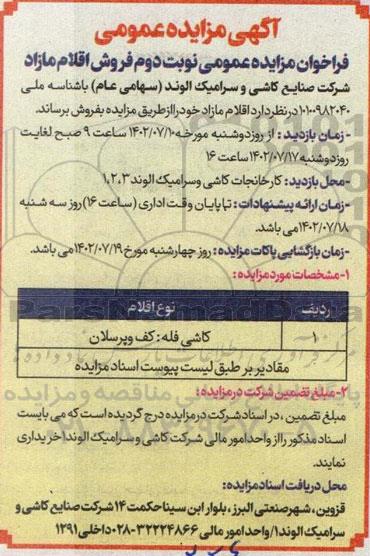 آگهی مزایده عمومی
فراخوان مزایده عمومی نوبت دوم فروش اقلام مازاد
شرکت صنایع کاشی و سرامیک الوند (سهامی عام) باشناسه ملی
۱۰۱۰۰۹۸۲۰۴۰ درنظر دارد اقلام مازاد خود را از طریق مزایده بفروش برساند.
-زمان بازدید: از روز دوشنبه مورخه ۱۴۰۲/۰۷/۱۰ ساعت ۹ صبح لغایت
روز دوشنبه ۱۴۰۲/۰۷/۱۷ ساعت ۱۶
-محل بازدید: کارخانجات کاشی وسرامیک الوند ۱،۲،۳
-زمان ارائه پیشنهادات: تا پایان وقت اداری (ساعت ۱۶) روز سه شنبه
۱۴۰۲/۰۷/۱۸ می باشد.
-زمان بازگشایی پاکات مزایده: روز چهارشنبه مورخ ۱۴۰۲/۰۷/۱۹ می باشد.
۱-مشخصات مورد مزایده:
ردیف نوع اقلام
۱ کاشی فله: کف وپرسلان
مقادیر بر طبق لیست پیوست اسناد مزایده
۲-مبلغ تضمین شرکت در مزایده:
مبلغ تضمین، در اسناد شرکت در مزایده درج گردیده است که می بایست
اسناد مذکور را از واحد امور مالی شرکت کاشی وسرامیک الوند خریداری
نمایند.
محل دریافت اسناد مزایده:
قزوین، شهرصنعتی البرز، بلوار ابن سینا حکمت ۱۴ شرکت صنایع کاشی و
سرامیک الوند۱/ واحد امور مالی ۳۲۲۲۴۸۶۶-۰۲۸ داخلی ۱۲۹۱